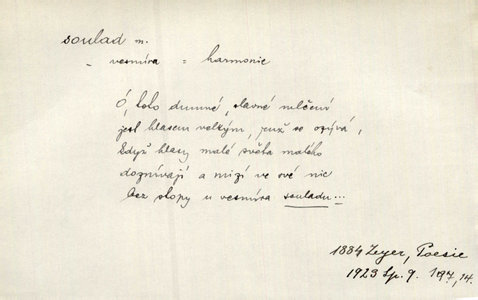 soulad m.
„ vesmíra = harmonie
Ó, toto dumné, slavné mlčení
jest hlasem velkým, jenž se ozývá,
když hlasy malé světa malého
doznívají a mizí ve své nic
bez stopy u vesmíra souladu...
1884 Zeyer, Poesie
1923 Sp. 9. 197, 14.